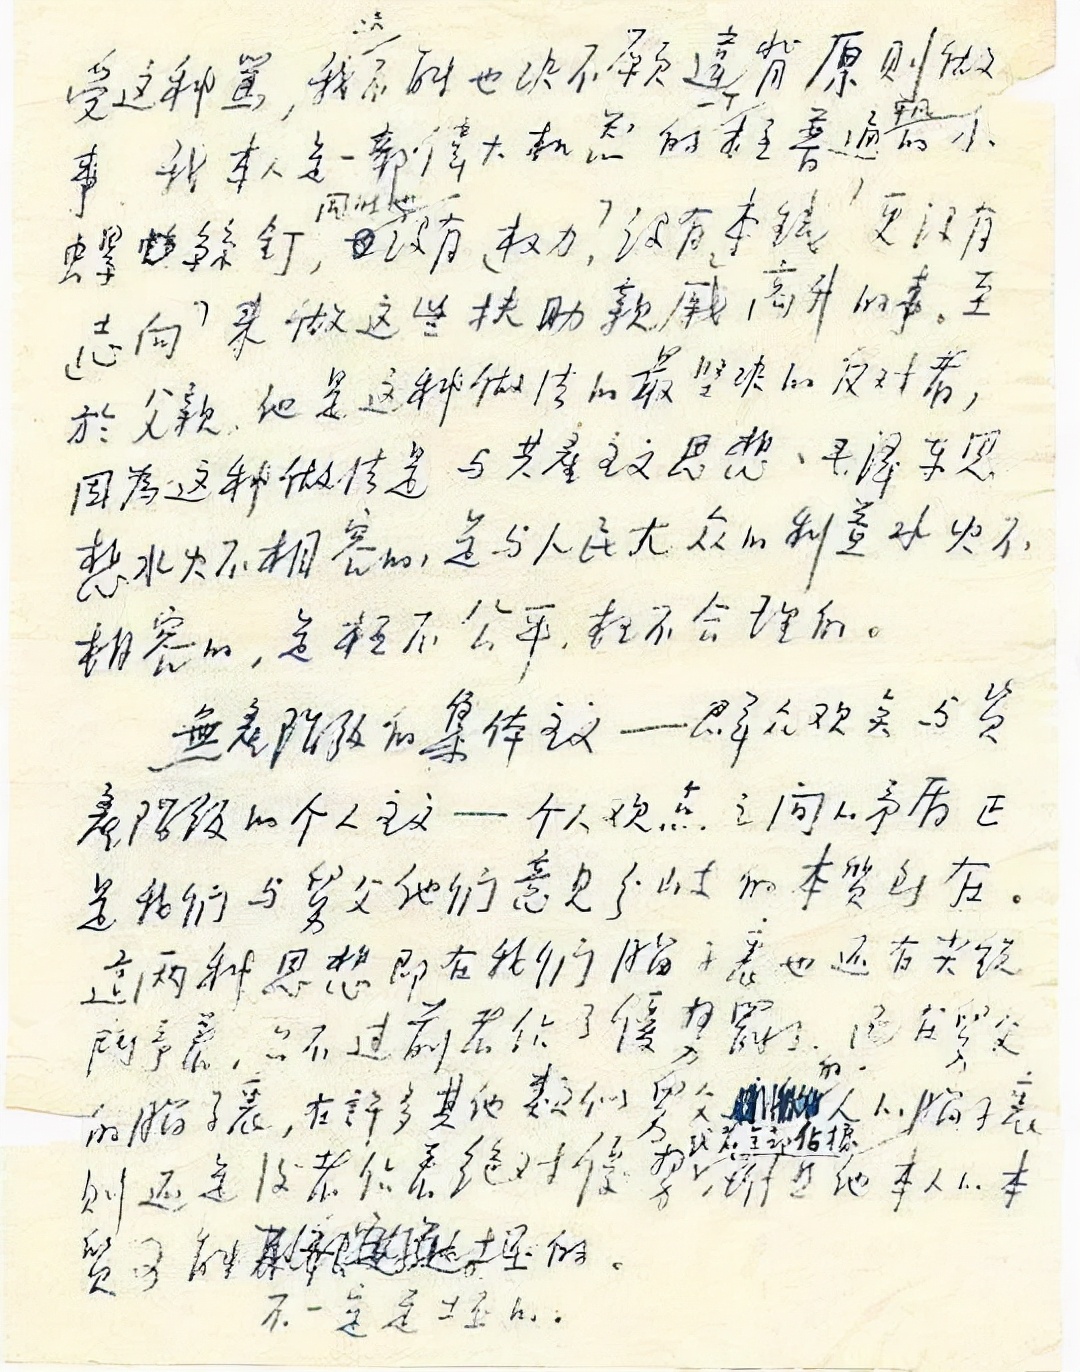 决
受这种骂，我不能也决不願違背原则做
事 我本人是一部偉大机器的極普通平凡的小
螺絲釘，同时也没有「权力」，没有「本錢」，更没有
「志向」来做这些扶助親戚高升的事。至
於父親，他是这种做法的最坚决的反对者，
因為这种做法是与共產主义思想、毛澤东思
想水火不相容的，是与人民大众的利益水火不
相容的，是極不公平，極不合理的。
無產階級的集体主义——群众观点与资
產階級的个人主义——个人观点之间的矛盾正
是我们与舅父他们意见分岐的本質所在。
這两种思想即在我们腦子裏也还有尖銳
鬥争着，只不过前者佔了優势罷了，而在舅父
的腦子裏，在許多其他類似舅父的人的腦子裏
或者全部佔據
则还是後者佔着絕对優势，雖然他本人的本
質可能是好的。
不一定是坏的。